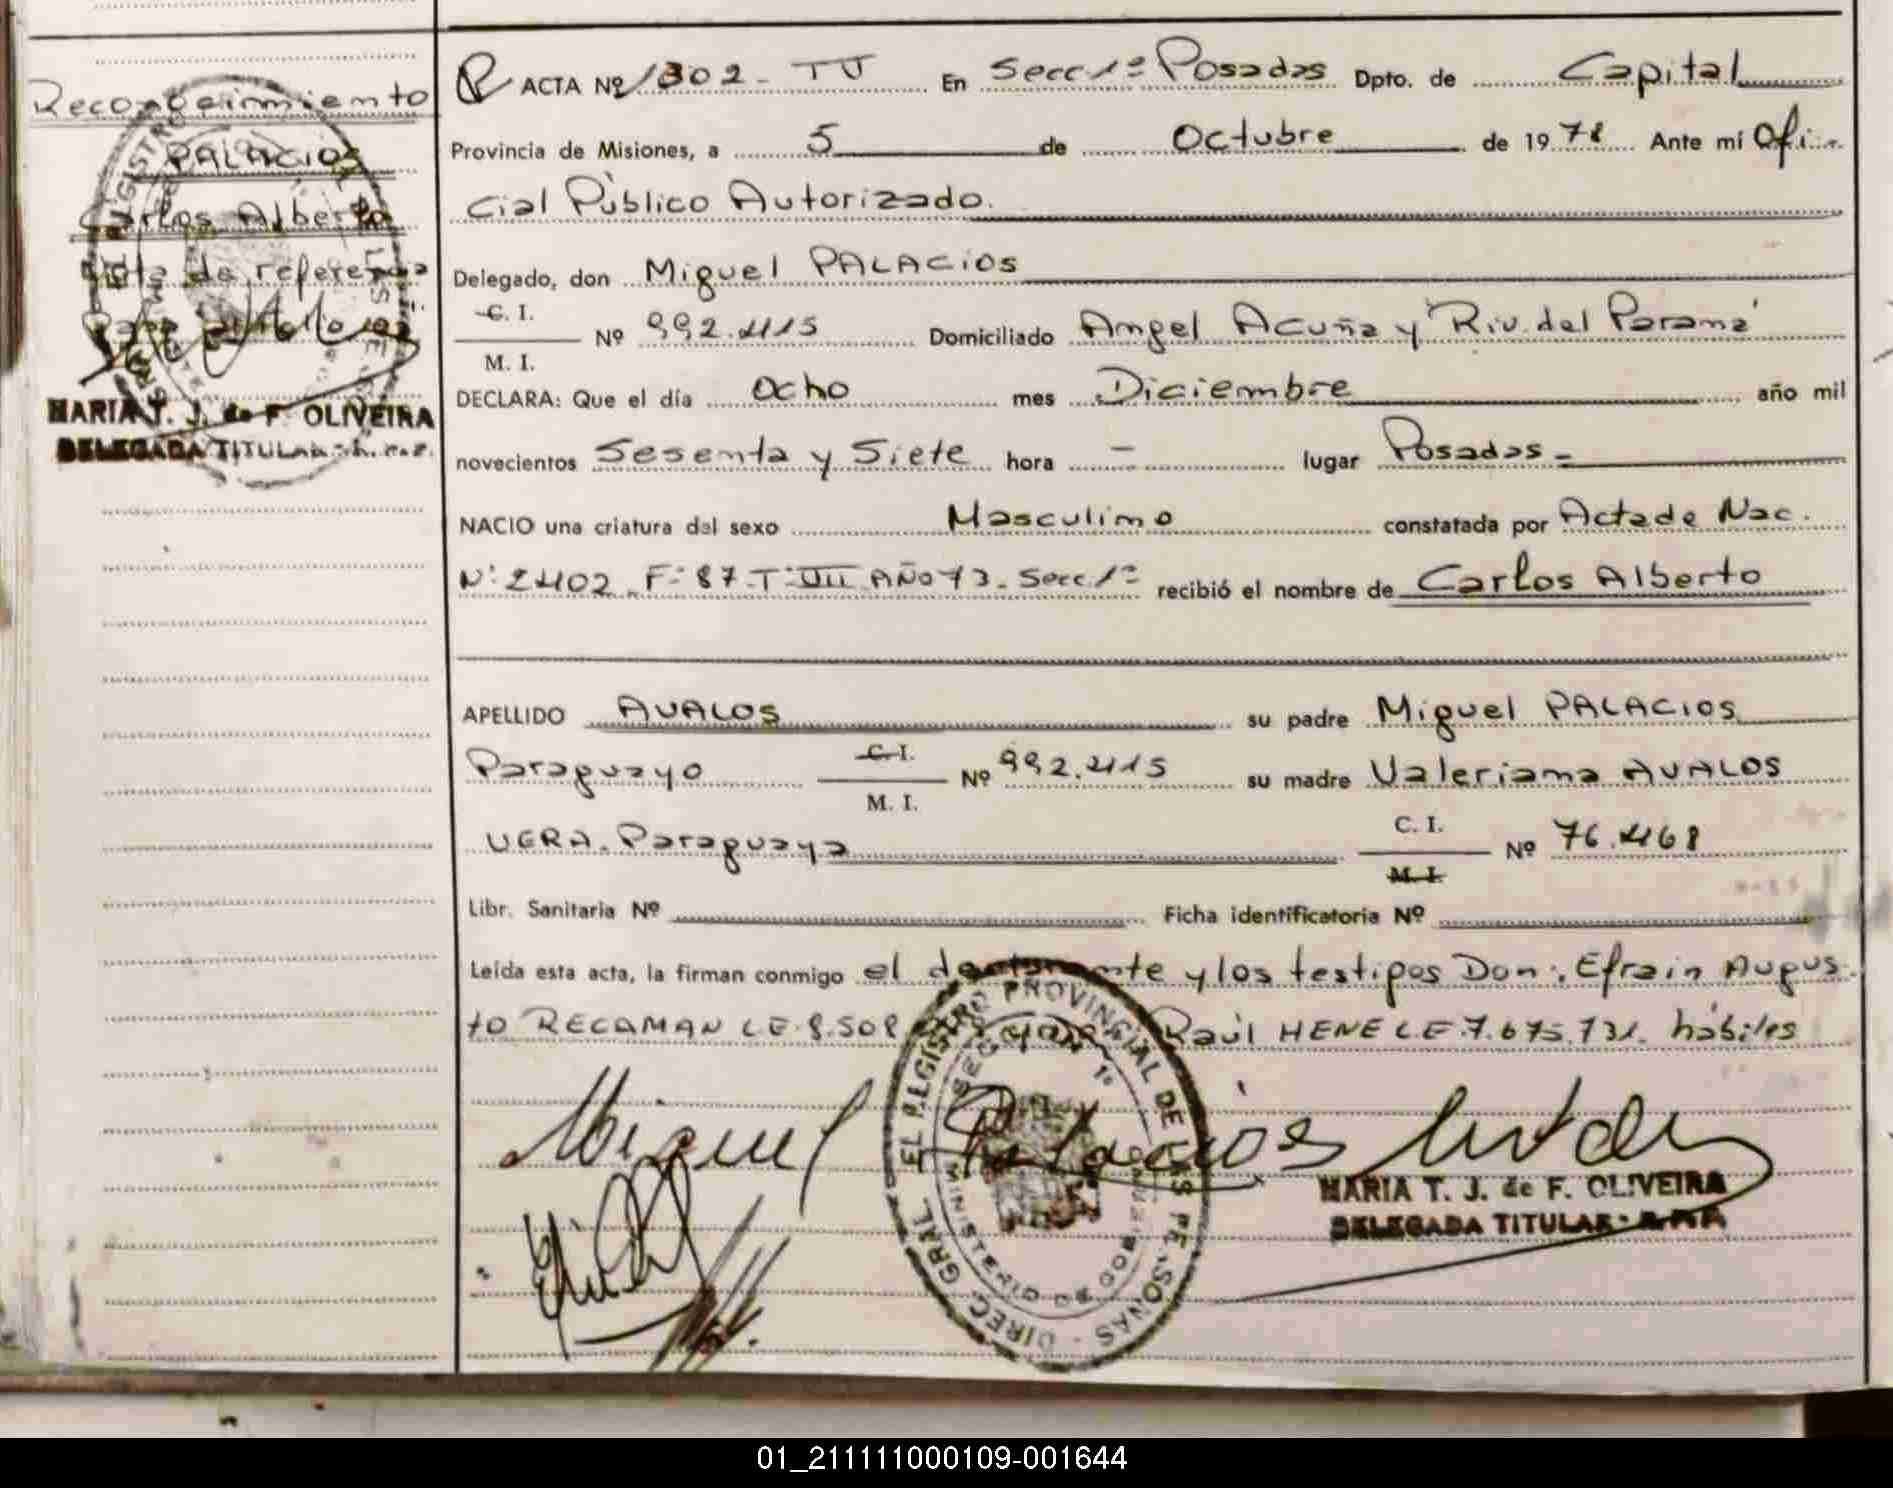 Reconocimiento
PALACIOS
Carlos Alberto
Nota de referencia
MARIA T. J. de F. OLIVEIRA
DELEGADA TITULAR
R ACTA Nº 1302 - TV En Secc 1ª Posadas Dpto. de Capital
Provincia de Misiones, a 5 de Octubre de 1978 Ante mí Ofi-
cial Público Autorizado.
Delegado, don Miguel PALACIOS
C. I.
M. I.
Nº 992.415 Domiciliado Angel Acuña y Riv. del Paraná
DECLARA: Que el día Ocho mes Diciembre, año mil
novecientos Sesenta y Siete hora - lugar Posadas -
NACIO una criatura del sexo Masculino constatada por Acta de Nac.
Nº 2402. Fº 87 - T: VII AÑO 73. Secc. 1ª recibió el nombre de Carlos Alberto
APELLIDO AVALOS su padre Miguel PALACIOS
Paraguayo C. I.
M. I.
Nº 992.415 su madre Valeriana AVALOS
VERA. Paraguaya C. I.
M. I.
Nº 76.468
Libr. Sanitaria Nº Ficha identificatoria Nº
Leída esta acta, la firman conmigo el declarante y los testigos Don: Efrain Augus-
to RECAMAN LE 8.508 Raúl HENE L E 7.675.731. hábiles
Miguel Palacios
MARIA T. J. de F. OLIVEIRA
DELEGADA TITULAR - R.P.P.
DIREC. GRAL. DEL REGISTRO PROVINCIAL DE LAS PERSONAS
SECCION 1º
MINISTERIO DE GOBIERNO
01_211111000109-001644